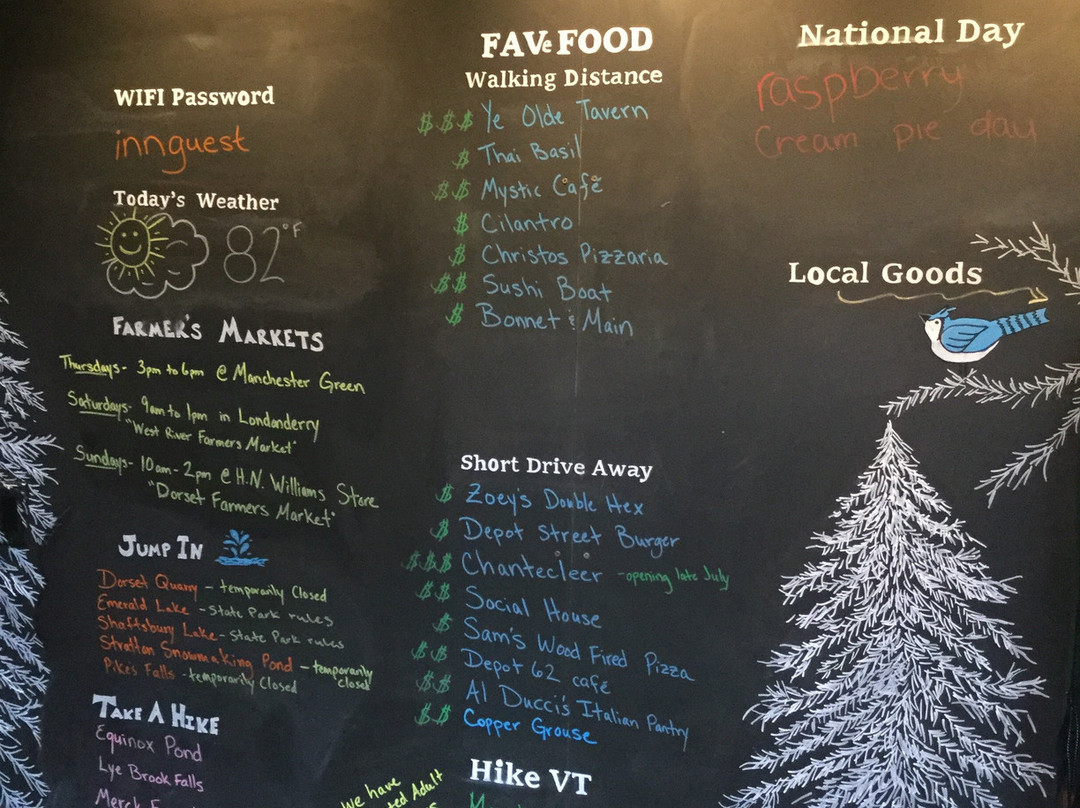 WIFI Password
innguest
Today's Weather
82°F
FARMER'S MARKETS
Thursdays- 3pm to 6pm @ Manchester Green
Saturdays- 9am to 1pm in Londonderry
"West River Farmers Market"
Sundays- 10am-2pm @ H.N. Williams Store
"Dorset Farmers Market"
JUMP IN
Dorset Quarry - temporarily Closed
Emerald Lake - State Park rules
Shaftsbury Lake - State Park rules
Stratton Snowmaking Pond - temporarily closed
Pike's Falls - temporarily Closed
TAKE A HIKE
Equinox Pond
Lye Brook Falls
Merck
We have
Adult
FAVe FOOD
Walking Distance
$$$ Ye Olde Tavern
$ Thai Basil
$$ Mystic Café
$ Cilantro
$ Christos Pizzaria
$$ Sushi Boat
$ Bonnet & Main
Short Drive Away
$ Zoey's Double Hex
$ Depot Street Burger
$$$ Chantecleer - opening late July
$$ Social House
$ Sam's Wood Fired Pizza
$$ Depot 62 café
$$ Al Ducci's Italian Pantry
$$ Copper Grouse
Hike VT
National Day
raspberry
Cream pie day
Local Goods